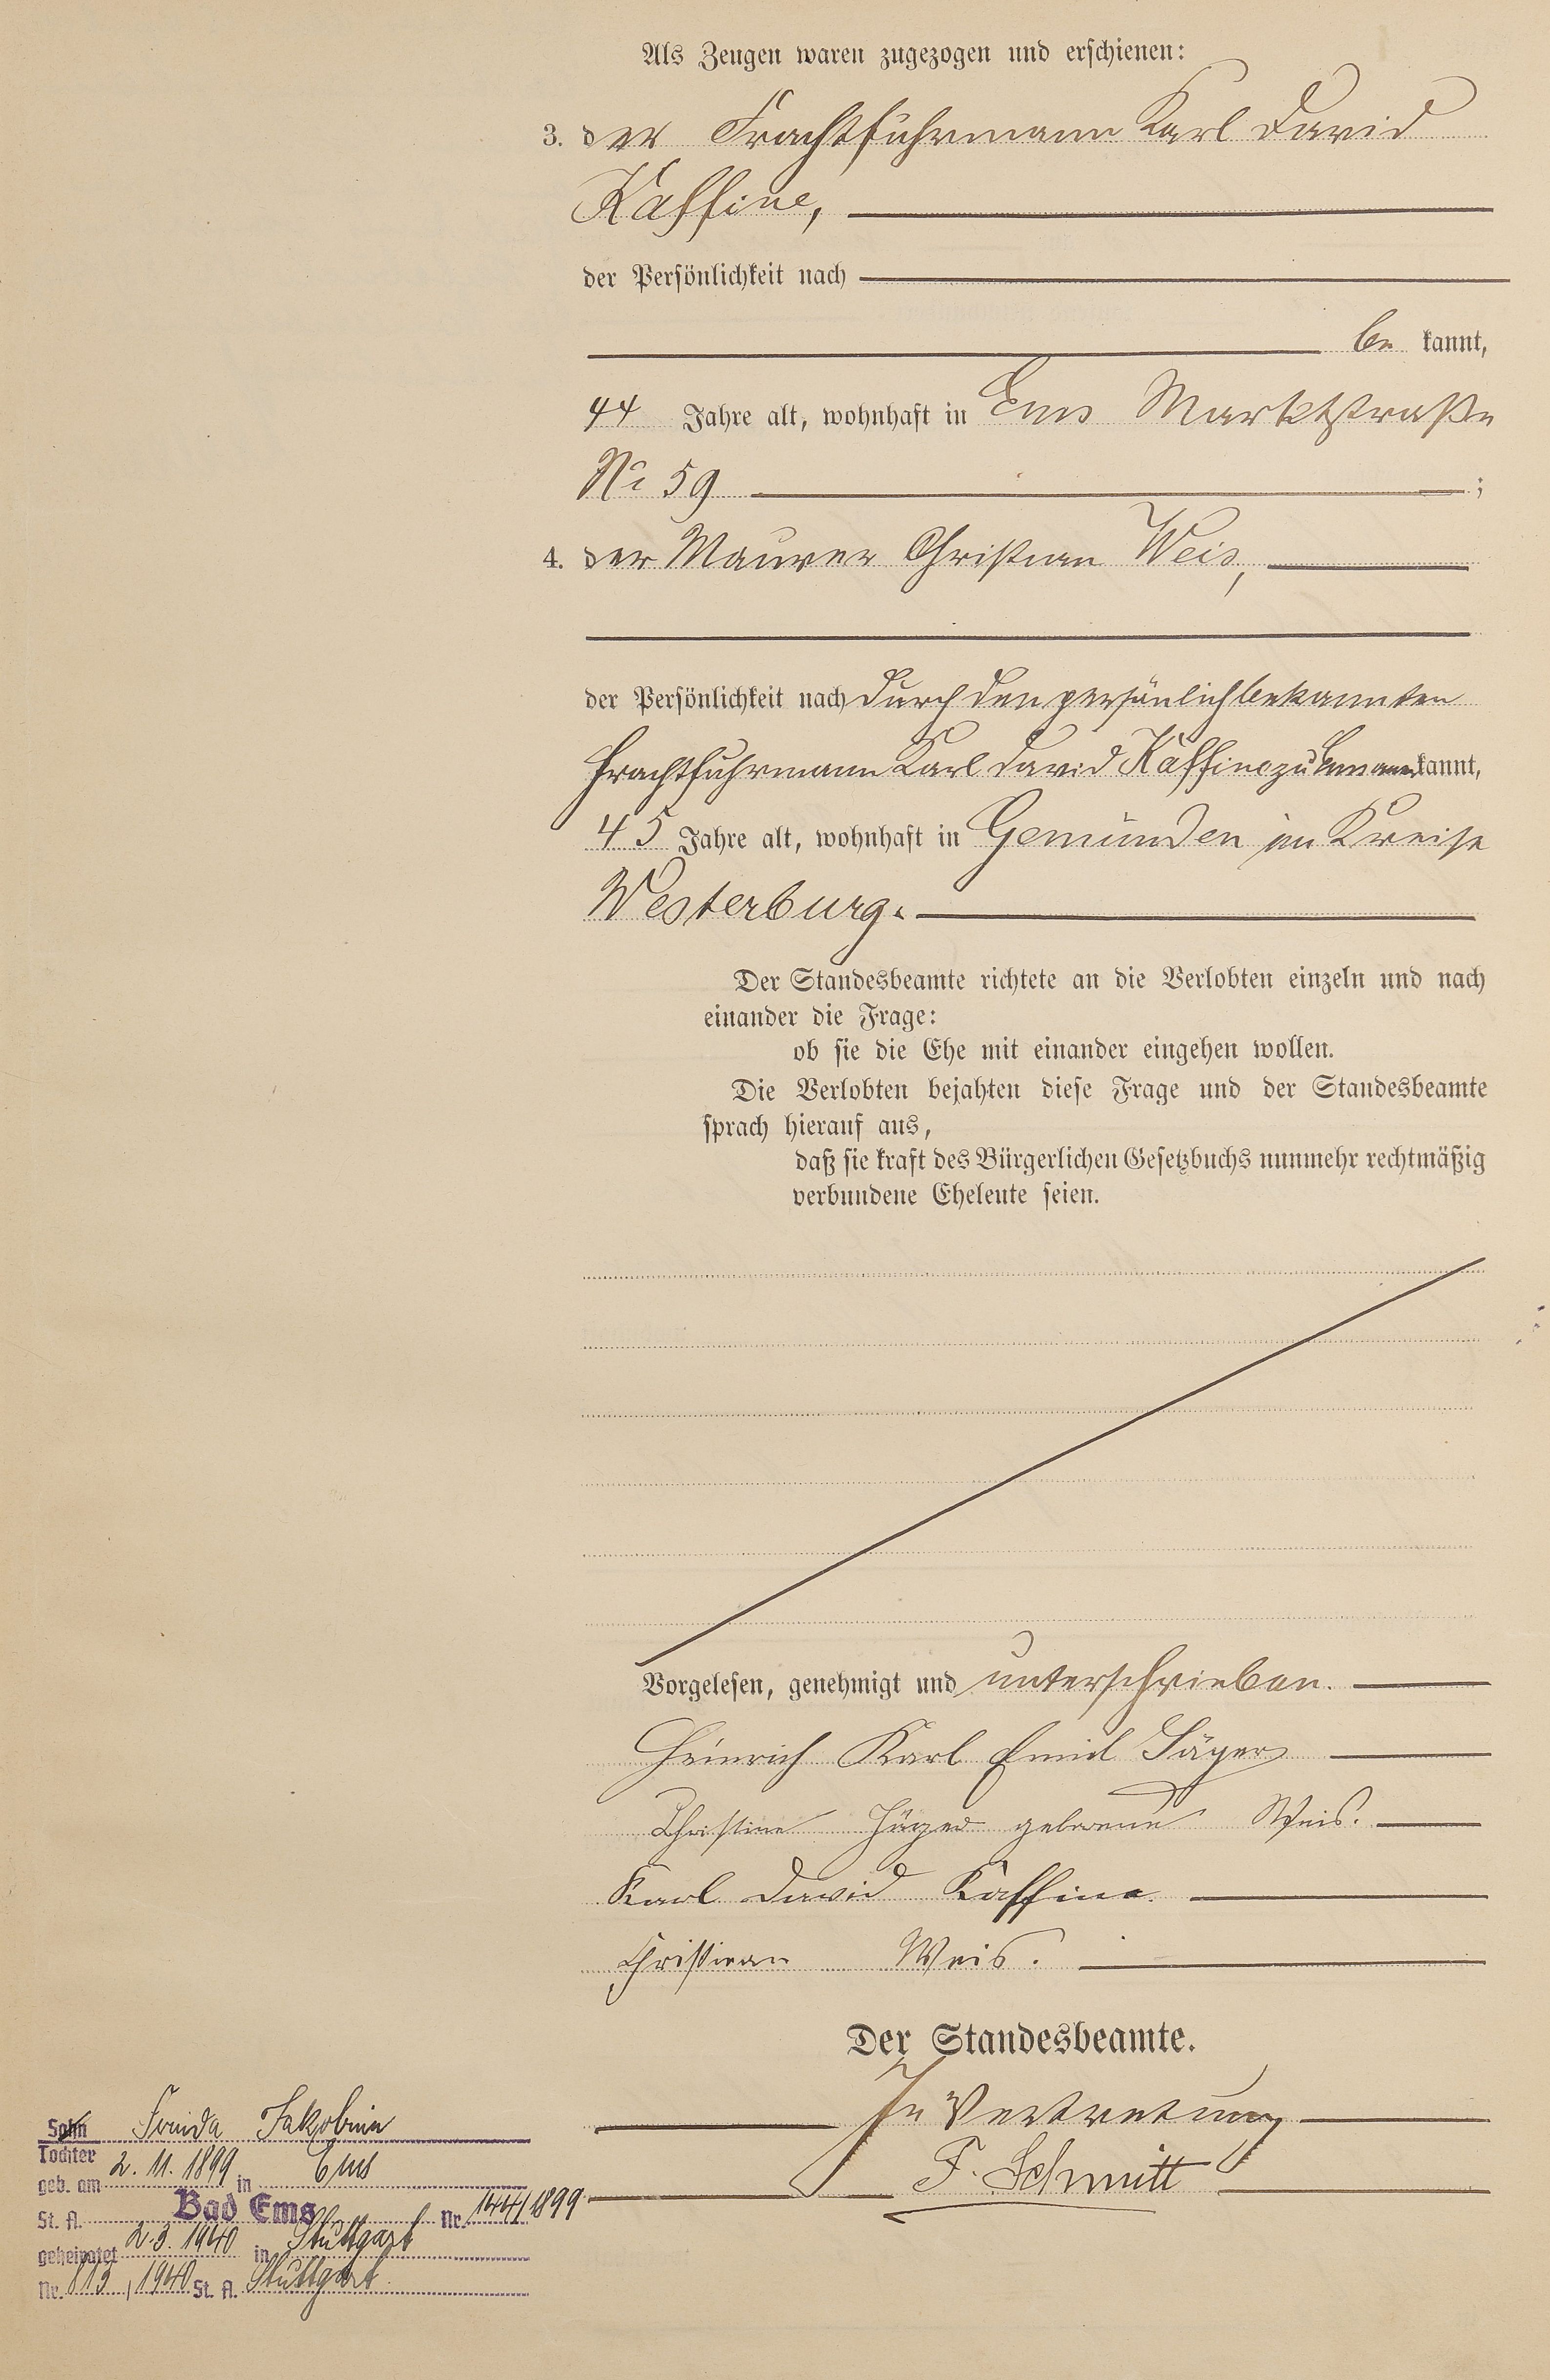 Als Zeugen waren zugezogen und erschienen:
3. der Frachtfuhrmann Karl David
Kaffine,
der Persönlichkeit nach
be kannt,
44 Jahre alt, wohnhaft in Ems Marktstraße
No 59 ;
4. der Maurer Christian Weis,
der Persönlichkeit nach durch den persönlich bekannten
Frachtfuhrmann Karl David Kaffine zu Ems anerkannt,
45 Jahre alt, wohnhaft in Gemünden im Kreise
Westerburg.
Der Standesbeamte richtete an die Verlobten einzeln und nach
einander die Frage:
ob sie die Ehe mit einander eingehen wollen.
Die Verlobten bejahten diese Frage und der Standesbeamte
sprach hierauf aus,
daß sie kraft des Bürgerlichen Gesetzbuchs nunmehr rechtmäßig
verbundene Eheleute seien.
Vorgelesen, genehmigt und unterschrieben.
Heinrich Karl Emil Jäger
Christine Jäger geborene Weis.
Karl David Kaffine.
Christian Weis.
Der Standesbeamte.
In Vertretung
F. Schmitt
Sohn Frieda Jakobine
Tochter
geb. am 2. 11. 1899 in Ems
St. A. Bad Ems Nr. 144/1899
geheiratet 2. 3. 1940 in Stuttgart
Nr. 813, 1940 St. A. Stuttgart